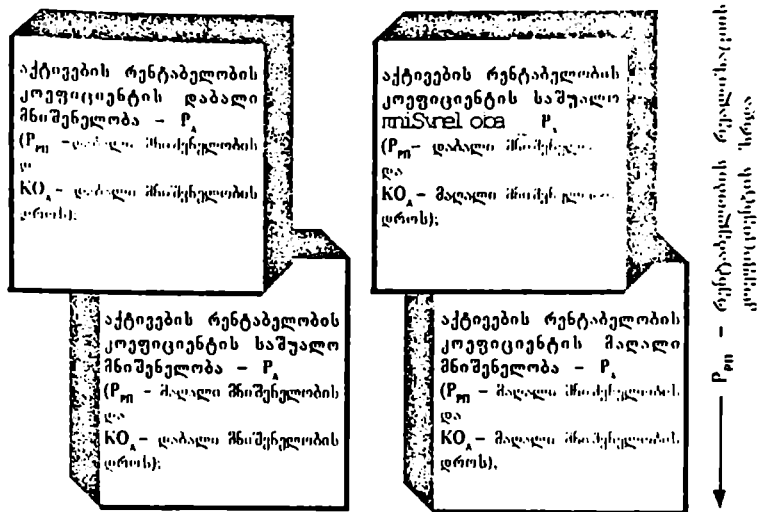 აქტივების რენტაბელობის
კოეფიციენტის დაბალი
მნიშვნელობა – Pₐ
(Pₚₙ – დაბალი მნიშვნელობის
და
KOₐ – დაბალი მნიშვნელობის
დროს);
აქტივების რენტაბელობის
კოეფიციენტის საშუალო
mniSvneloba Pₐ
(Pₚₙ – დაბალი
და
KOₐ – მაღალი
დროს);
აქტივების რენტაბელობის
კოეფიციენტის საშუალო
მნიშვნელობა – Pₐ
(Pₚₙ – მაღალი მნიშვნელობის
და
KOₐ – დაბალი მნიშვნელობის
დროს);
აქტივების რენტაბელობის
კოეფიციენტის მაღალი
მნიშვნელობა – Pₐ
(Pₚₙ – მაღალი მნიშვნელობის
და
KOₐ – მაღალი მნიშვნელობის
დროს),
Pₚₙ – რენტაბელობის რეალიზაციის
კოეფიციენტის ზრდა